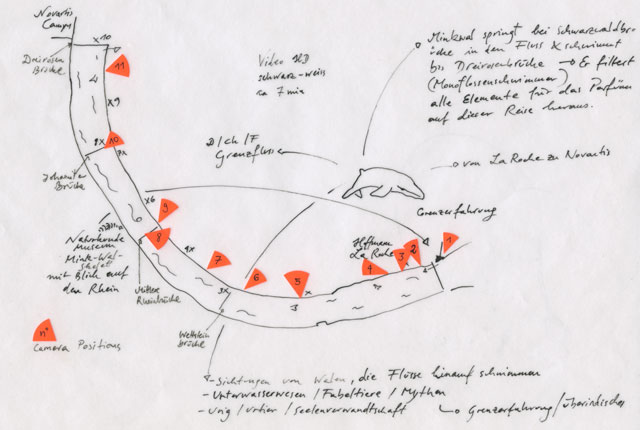 Novartis
Campus
x10
Dreirosen
Brücke
11
Video HD
schwarz-weiss
ca 7 min
Minkwal springt bei Schwarzwaldbrü
cke in den Fluss & schwimmt
bis Dreirosenbrücke → & filtert
(Monoflossenschwimmer)
alle Elemente für das Parfüm
auf dieser Reise heraus.
x9
8x
10
7x
Johanniter
Brücke
D/ch/F
Grenzfluss
von La Roche zu Novartis
x6
9
Grenzerfahrung
Naturkunde
Museum
Mink-Wal-
mit Blick auf
den Rhein
8
4x
7
Hoffmann
La Roche
4
3
2
1
Mittlere
Rheinbrücke
3x
6
5
Wettstein
brücke
n°
Camera Positions
- Sichtungen von Walen, die Flüsse hinauf schwimmen
- Unterwasserwesen / Fabeltiere / Mythen
- Urtier / Seelenverwandtschaft
Grenzerfahrung /